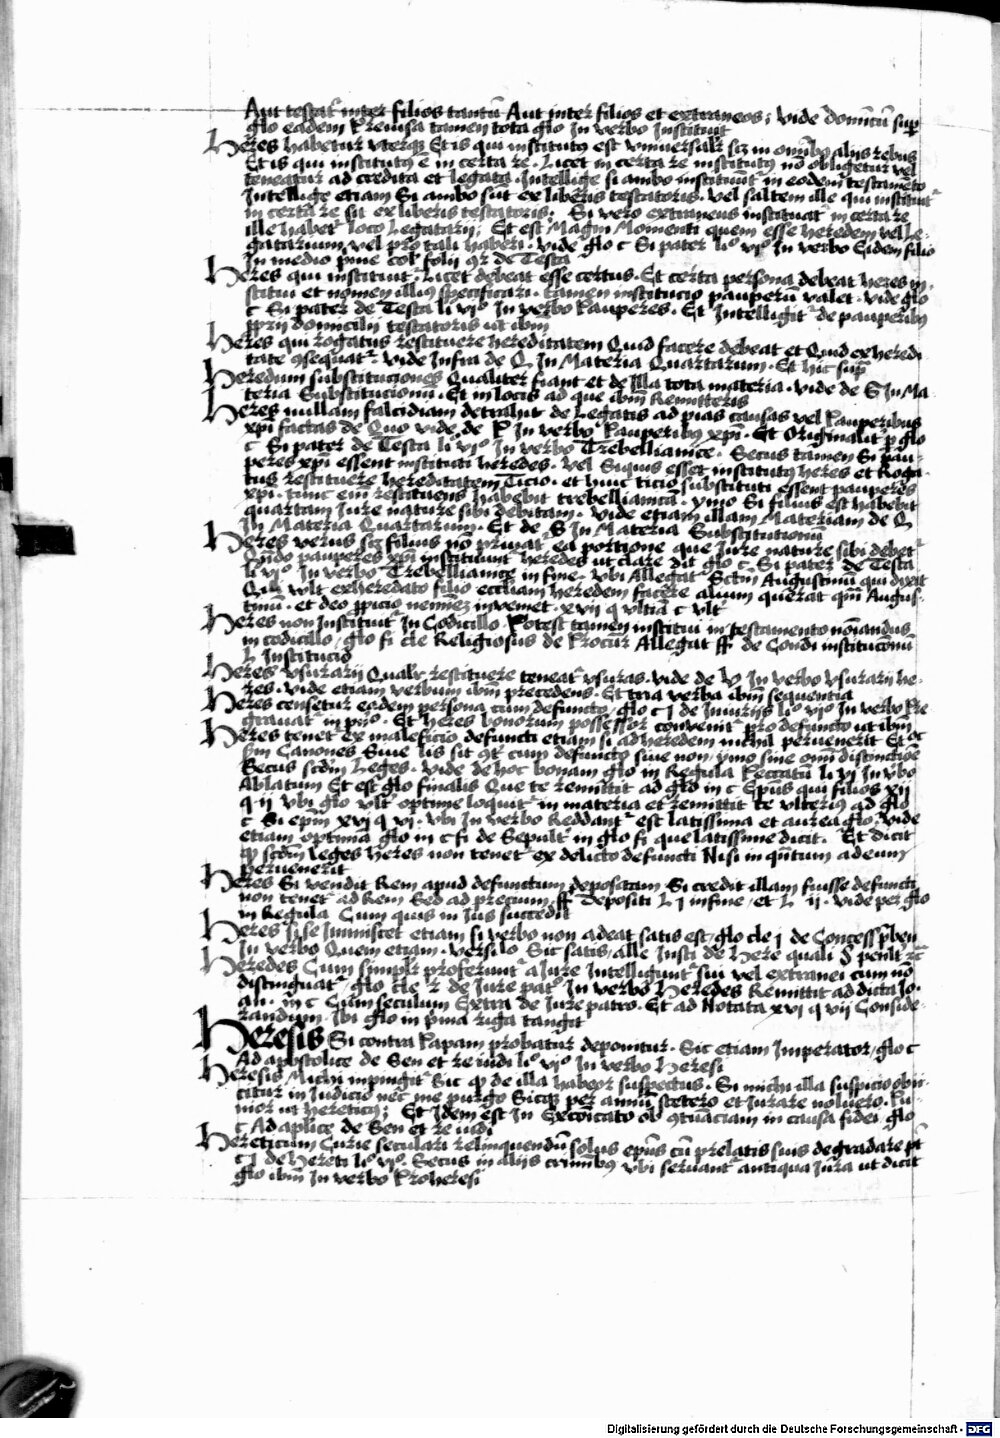 Aut testat᷑ inter filios tantū Aut inter filios et extraneos; vide domīcū sup̱
glo eadem Preuisa tamen tota glo In verbo Instituit
Heres habetur vterqꝫ Et is qui institutꝰ est vniuersalr̄ sꝫ in om̄ibꝰ alijs rebus
Et is qui institutꝰ ē in certa re . Licet in certa re institutꝰ nō obligetur vel
teneatur ad credita et legata . Intellige si ambo instituūt᷑ in eodem testamēto
Intellige etiam Si ambo sūt ex liberis testatoris . vel saltem ille qui instituit᷑
in certa re sit ex liberis testatoris; Si vero extraneus instituat᷑ in certa re
ille habet᷑ loco Legatarij; Et est Magni Momenti quem esse heredem vel Le-
gatarium vel pro tali haberi . vide glo c Si pater liº vjº In verbo Eidem filio
In medio pme col folij 9r de Testa
Heres qui instituit᷑ . Licet debeat esse certus . Et certa persona debeat heres in-
stitui et nomen illiꝰ specificari . tamen institucio pauperū valet . vide glo
c Si pater de Testa li vjº In verbo Pauperes . Et Intelligit᷑ de pauperibꝰ
pprij domicilij testatoris ut ibm
Heres qui rogatus restituere hereditatem Quid facere debeat et Quid ex heredi
tate 9sequat᷑ vide Infra de Q In Materia Quartarum . Et hic sup̱
Heredum substituciones Qualiter fiant et de Illa tota materia . vide de S In Ma
teria Substitucionū . Et in locis ad que ibm Remitteris
Heres nullam falcidiam detrahit de Legatis ad pias causas vel Pauperibus
xp̄i factas de Quo vide de P In verbo Pauperibꝰ xp̄i . Et Originalit᷑ p glo
c Si pater de Testa li vjº In verbo Trebellianice . Secus tamen Si pau-
peres xp̄i essent instituti heredes . vel Siquis esset institutꝰ heres et Roga-
tus restituere hereditatem Ticio . et huic ticio substituti essent pauperes
xp̄i . tunc em̄ restituens habebit trebellianicā . ymo Si filius est habebit
quartam Iure nature sibi debitam . vide etiam illam Materiam de Q
In Materia Quartarum . Et de S In Materia Substitutionū
Heres verus sꝫ filius nō priuat᷑ ea portione que Iure nature sibi debet᷑
Qn̄do pauperes xp̄i instituunt᷑ heredes ut clare dit glo c Si pater de Testa
li vjº In verbo Trebellianice in fine . vbi Allegat᷑ Sctm̄ Augustinū qui dixit
Qui vult exheredato filio eccliam heredem facere alium querat qm̄ Augus-
tinū . et deo ꝓpicio neminez inveniet . xvij q vltīa c vlt᷑
Heres non Instituit᷑ In Codicillo Potest tamen institui in testamento noīandus
in codicillo / glo fi cle Religiosus de Procur̄ Allegat ff de Condi institucōnū
L Institucio
Heres vsurarij Qualr̄ restituere teneat᷑ vsuras . vide de V In verbo vsurarij he-
res . vide etiam verbum ibm precedens . Et tria verba ibm sequentia
Heres censetur eadem persona cum defuncto / glo c j de Iniurijs liº vjº In verbo Pre
grauat᷑ in prīº . Et heres bonorum possessor conuenit᷑ pro defuncto ut ibm
Heres tenet᷑ ex maleficio defuncti etiam si ad heredem nichil peruenerit Et hoc
scdm Canones Siue lis sit 9t᷑ cum defuncto siue non / ymo sine om̄i distinctiōe
Secus scdm Leges . vide de hoc bonam glo in Regula Peccatū li vj In vbo
Ablatum Et est glo finalis Que te remittit ad glō in c Ep̄us qui filios xij
q ij vbi glo vlt᷑ optime loquit᷑ in materia et remittit te vlteriꝰ ad glo
c Si ep̄m xvj q vj . vbi In verbo Reddant᷑ est latissima et aurea glo / vide
etiam optimā glo in c fi de Sepult᷑ in glo fi que latissime dicit . Et dicit
qꝫ scdm Leges Heres non tenet᷑ ex delicto defuncti Nisi in qn̄tum ad eum
peruenerit
Heres Si vendit Rem apud defunctum depositam Si credit illam fuisse defuncti
non tenet᷑ ad Rem Sed ad precium / ff Depositi L j in fine / et L ij . vide per glo
in Regula Cum quis in Ius succedit
Heres Si se Immiscet etiam si verbo non adeat satis est / glo cle j de Concess p̄ben
In verbo Quem etiam . versilo Sic satis / alle Insti de Here quali § penlt᷑ rc
Heredes Cum simplr̄ proferunt᷑ a Iure Intelligunt᷑ sui vel extranei cum nō
distinguat᷑ / glo cle 2 de Iure patº In verbo Heredes Remittit ad dicta Io
an . in c Cum seculum Extra de Iure patro . Et ad Notata xvj q vij Conside-
randum . Ibi glo in pma riga tangit
Heresis Si contra Papam probatur deponitur . Sic etiam Imperator / glo c
Ad apostolice de Sen et re iudi liº vjº In verbo Heresi
Heresis Michi inpingit᷑ Sic qꝫ de illa habeor suspectus . Si michi illa suspicio obij-
citur in Iudicio nec me purgo Sicqꝫ per annū stetero et Iurare noluero . Pu-
nior ut hereticꝰ; Et Idem est In Excōicato ob 9tuāciam in causa fidei glo
c Ad aplice de Sen et re iudi
Hereticum Curie seculari relinquendū solus ep̄us cū prelatis suis degradare pt̄
c j de Hereti liº vjº . Secus in alijs crim̄ibꝰ vbi seruant᷑ antiqua Iura ut dicit
glo ibm In verbo Pro heresi
Digitalisierung gefördert durch die Deutsche Forschungsgemeinschaft - DFG